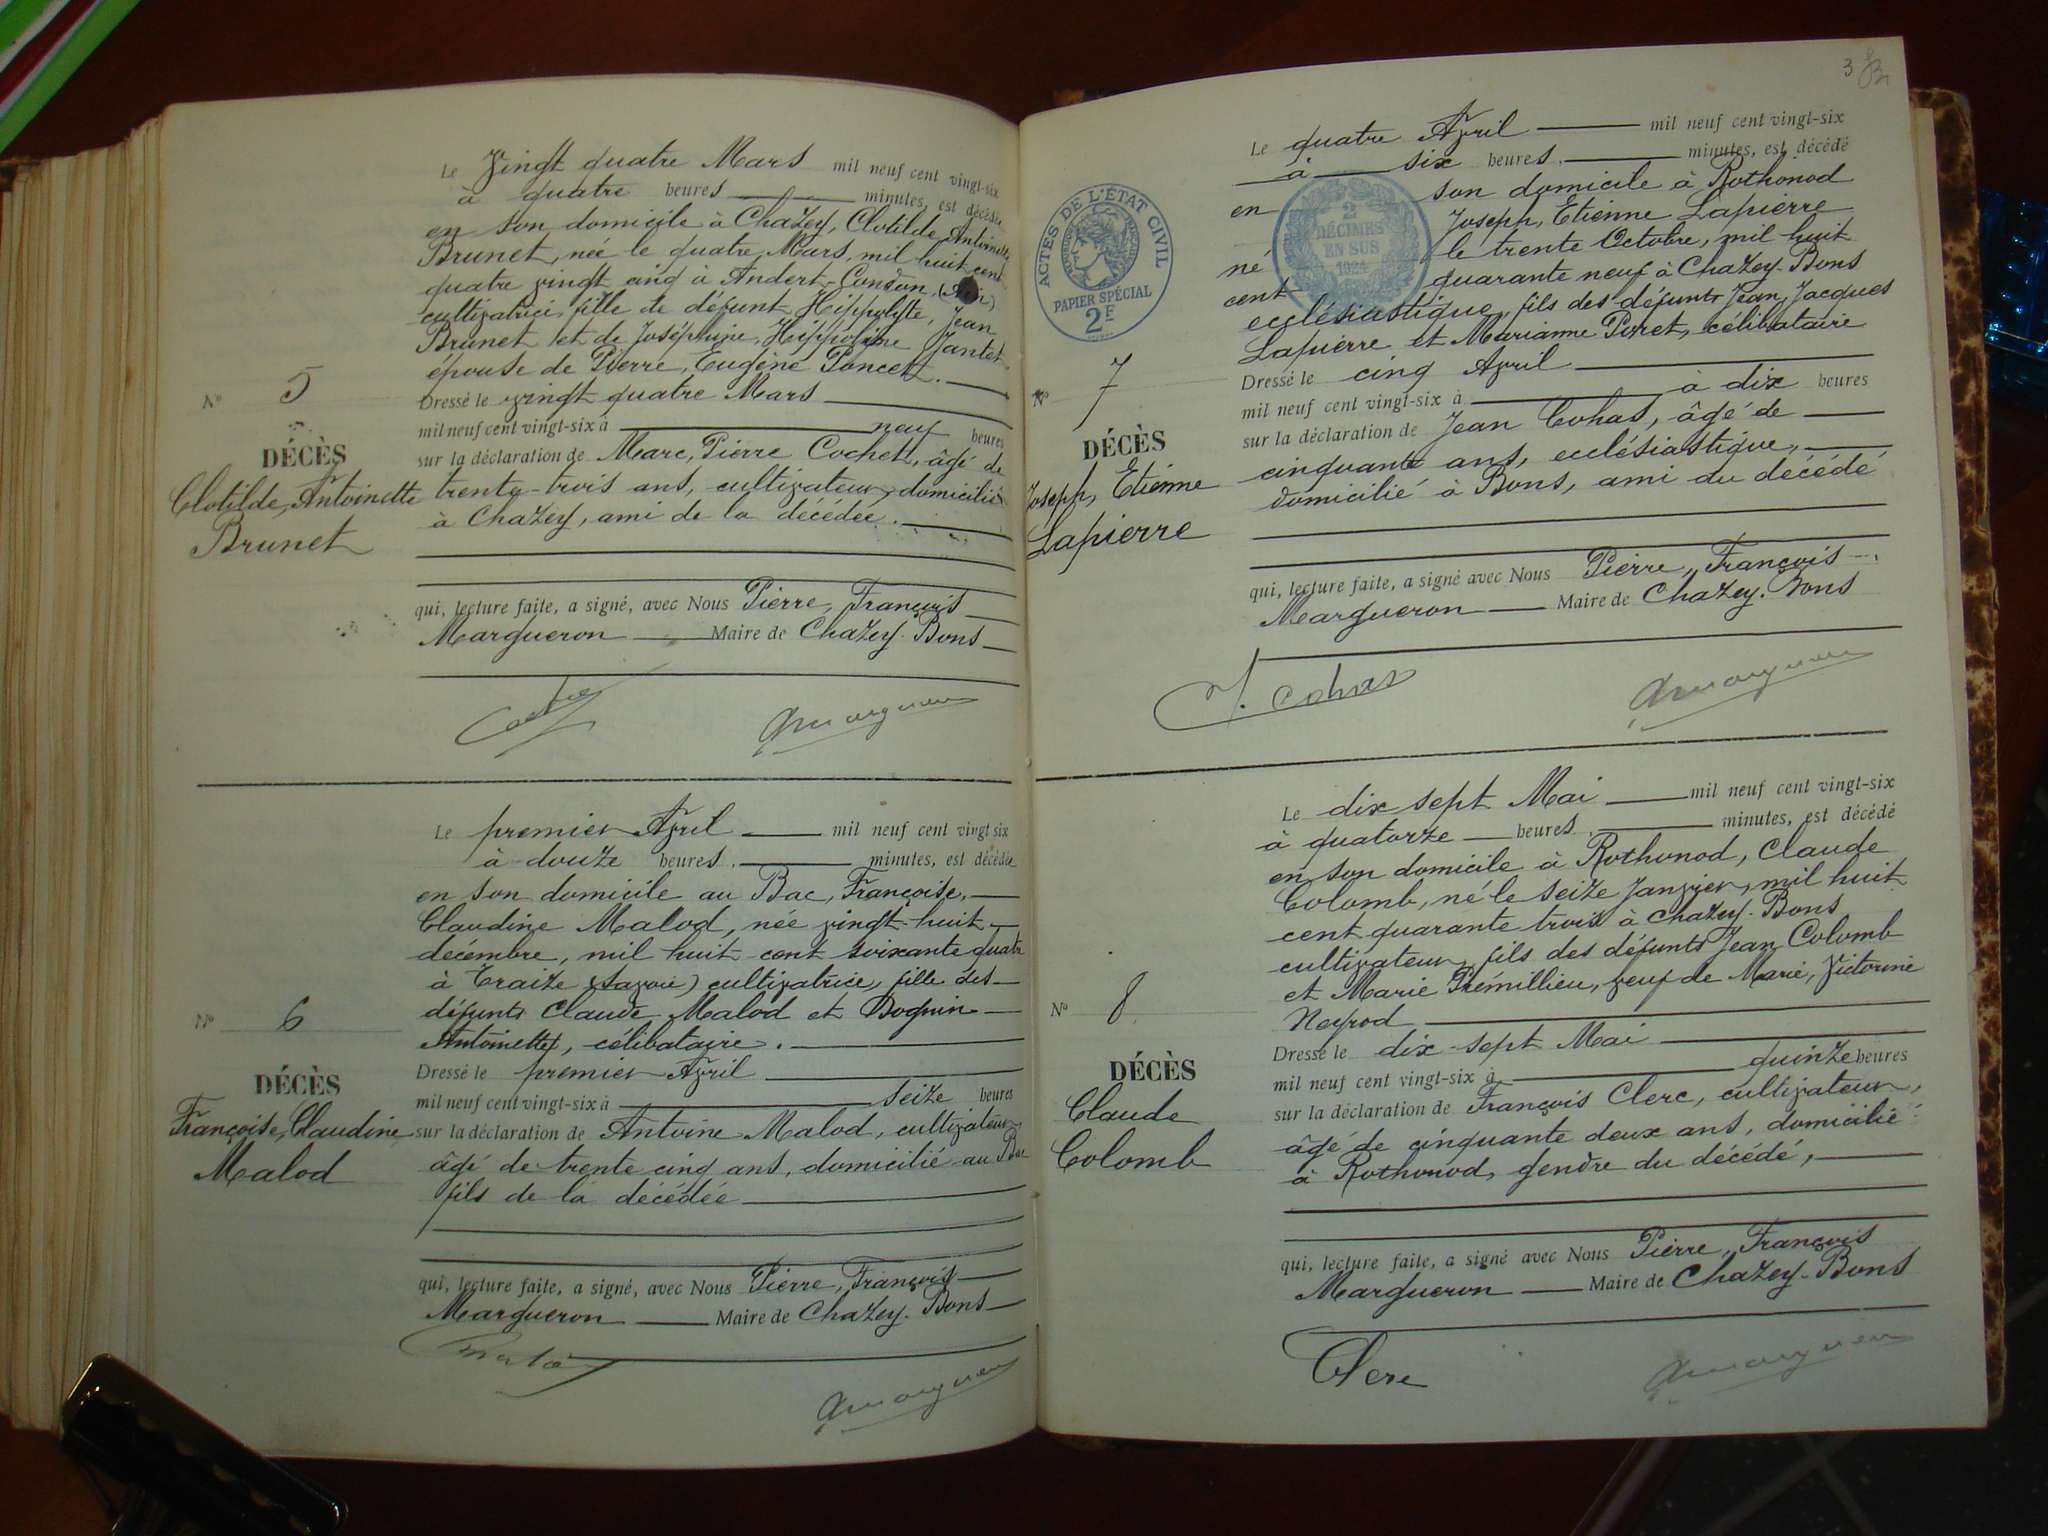 Le Vingt quatre Mars mil neuf cent vingt-six
à quatre heures minutes, est décédée
en son domicile à Chazey, Clotilde, Antoinette
Brunet, née le quatre Mars, mil huit cent
quatre vingt cinq à Andert-Condon, (Ain)
cultivatrice, fille de défunt Hippolyte, Jean
Brunet et de Joséphine, Hippoline Jantet
épouse de Pierre, Eugène Poncet.
Dressé le vingt quatre Mars
mil neuf cent vingt-six à neuf heures
sur la déclaration de Marc, Pierre Cochet, âgé de
trente-trois ans, cultivateur, domicilié
à Chazey, ami de la décédée.
qui, lecture faite, a signé, avec Nous Pierre, François
Margueron Maire de Chazey-Bons
N° 5
DÉCÈS
Clotilde, Antoinette
Brunet
Le premier Avril mil neuf cent vingt six
à douze heures. minutes, est décédée
en son domicile au Bac, Françoise,
Claudine Malod, née vingt-huit
décembre, mil huit cent soixante quatre
à Traize (Savoie) cultivatrice, fille des
défunts Claude Malod et Boquin
Antoinette, célibataire.
Dressé le premier Avril
mil neuf cent vingt-six à seize heures
sur la déclaration de Antoine Malod, cultivateur
âgé de trente cinq ans, domicilié au Bac
fils de la décédée
qui, lecture faite, a signé, avec Nous Pierre, François
Margueron Maire de Chazey-Bons
N° 6
DÉCÈS
Françoise, Claudine
Malod
3
ACTES DE L'ÉTAT CIVIL
PAPIER SPÉCIAL
2F
2
DÉCIMES
EN SUS
1924
Le quatre Avril mil neuf cent vingt-six
à six heures. minutes, est décédé
en son domicile à Rothonod
Joseph, Etienne Lapierre
né le trente Octobre, mil huit
cent quarante neuf à Chazey-Bons
ecclésiastique, fils des défunts Jean, Jacques
Lapierre et Marianne Puret, célibataire
Dressé le cinq Avril
mil neuf cent vingt-six à à dix heures
sur la déclaration de Jean Cohas, âgé de
cinquante ans, ecclésiastique,
domicilié à Bons, ami du décédé
qui, lecture faite, a signé avec Nous Pierre, François
Margueron Maire de Chazey-Bons
J. Cohas
N° 7
DÉCÈS
Joseph, Etienne
Lapierre
Le dix sept Mai mil neuf cent vingt-six
à quatorze heures. minutes, est décédé
en son domicile à Rothonod, Claude
Colomb, né le seize Janvier, mil huit
cent quarante trois à Chazey-Bons
cultivateur, fils des défunts Jean Colomb
et Marie Prémillieu, veuf de Marie, Victorine
Neyrod
Dressé le dix-sept Mai
mil neuf cent vingt-six à quinze heures
sur la déclaration de François Clerc, cultivateur,
âgé de cinquante deux ans, domicilié
à Rothonod, gendre du décédé,
qui, lecture faite, a signé avec Nous Pierre, François
Margueron Maire de Chazey-Bons
Clerc
N° 8
DÉCÈS
Claude
Colomb